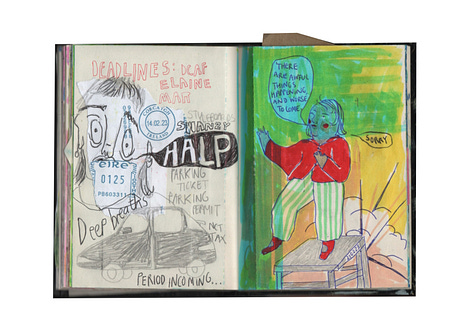 DEADLINES: DCAF
ELAINE
MAM
14·02·23
STUDIO FEES
SHANDY
HALP
éIRe
0125
PB603311
PARKING
TICKET
PARKING
PERMIT
Deep breaths
NCT
TAX
PERIOD INCOMING...
THERE
ARE AWFUL
THINGS
HAPPENING
AND WORSE
TO COME.
SORRY